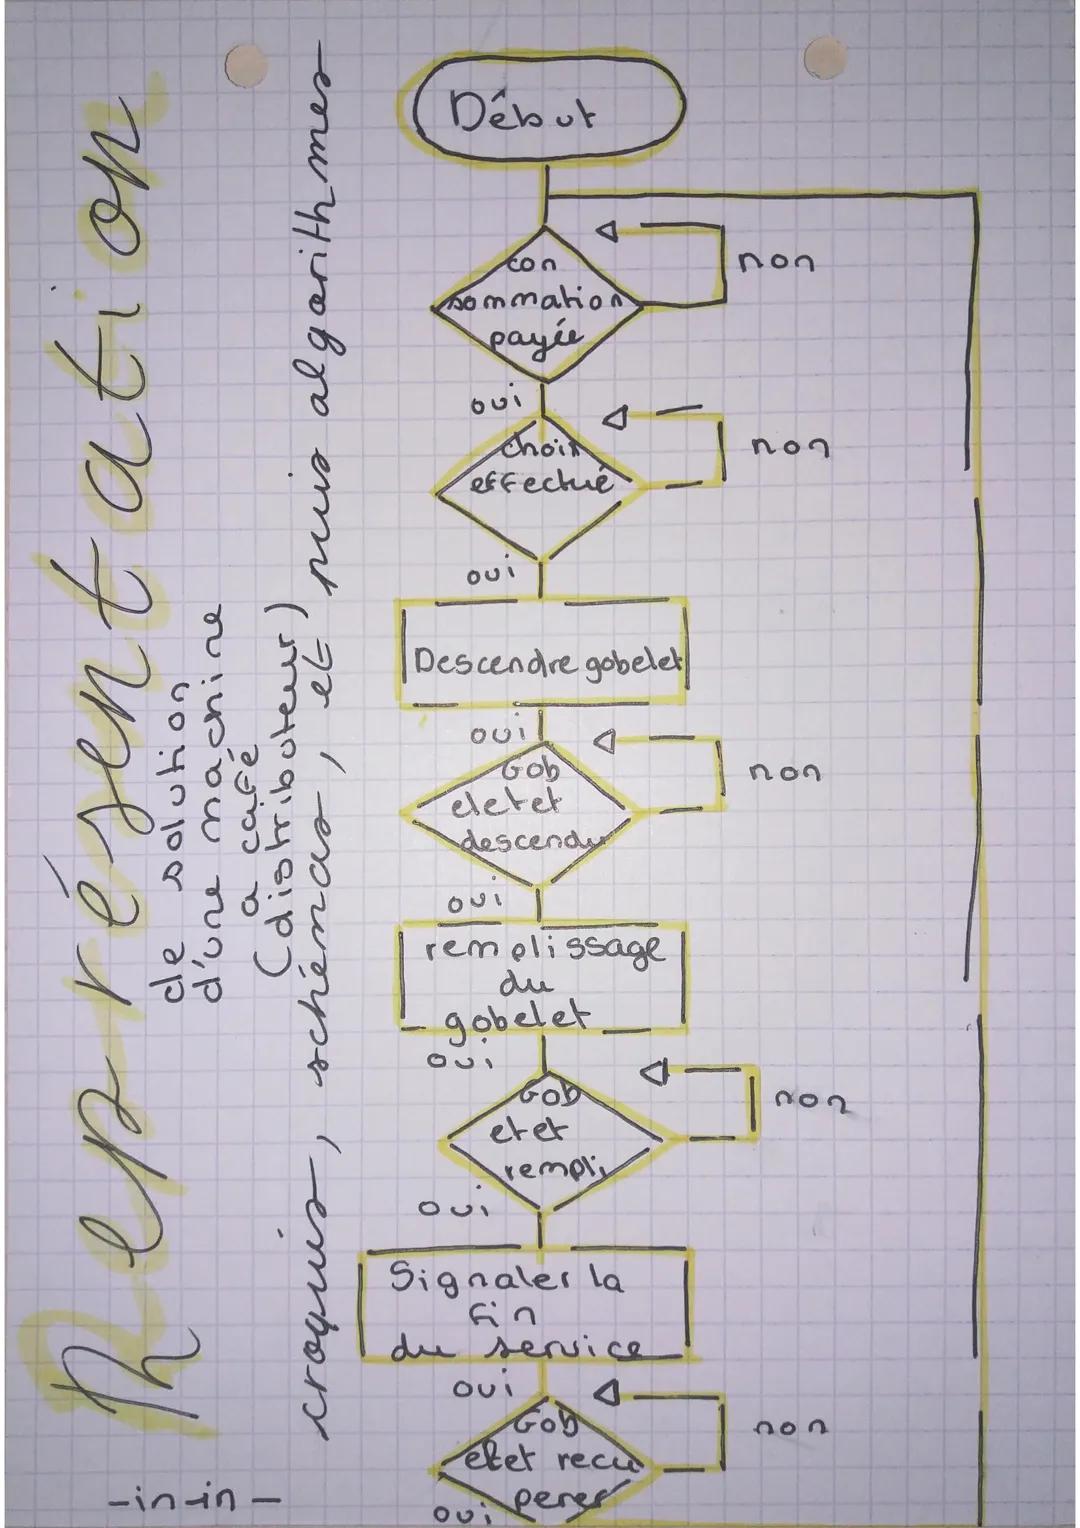 Représentation
de solution
d'une machine
a café
(distributeur)
croquis, schémas, et puis algorithmes
Début
con
sommation
payée
non
oui
choix
effectué
non
oui
Descendre gobelet
oui
Gob
eletet
descendu
non
oui
remplissage
du
gobelet
oui
Gob
etet
rempli
non
oui
Signaler la
fin
du service
oui
Gob
etet recu
perer
non
oui
-in-in-